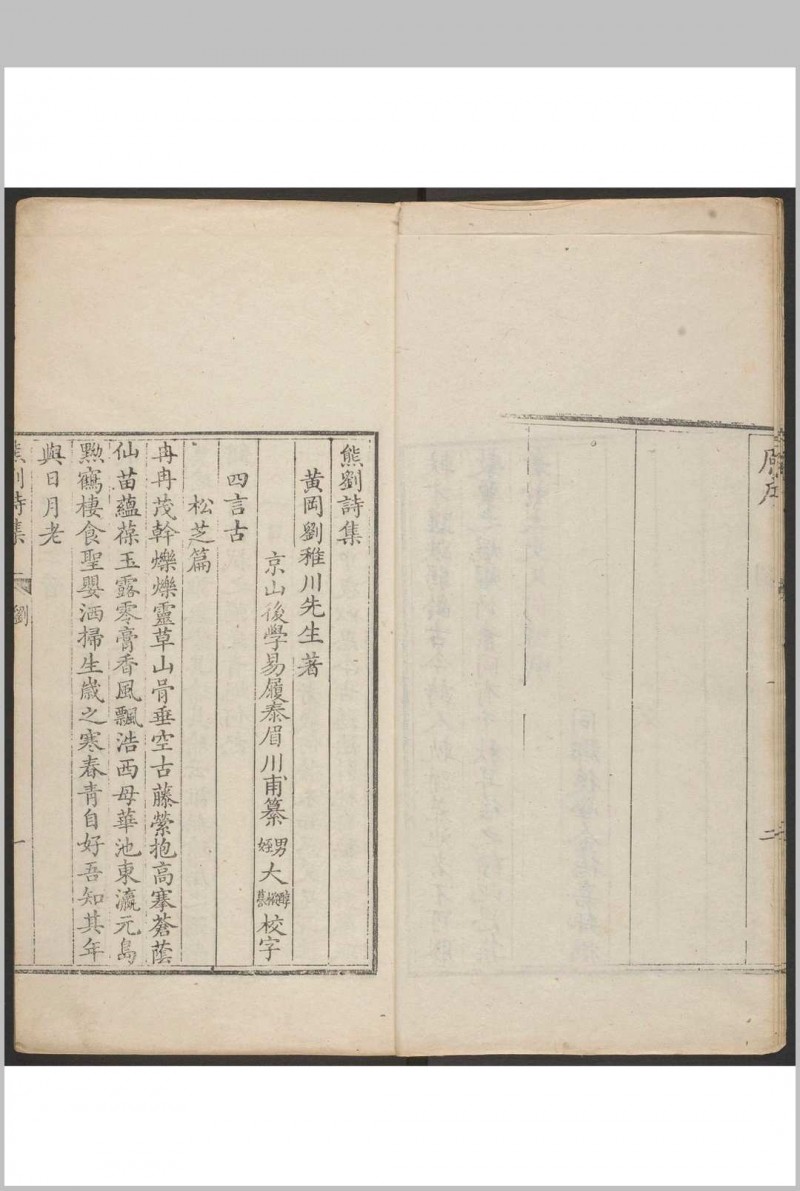 二
熊劉詩集
黃岡劉稚川先生著
京山後學易履泰眉川甫纂 男姪大醇 校字
四言古
松芝篇
冉冉茂幹爍爍靈草山骨垂空古藤縈抱高搴蒼蔭
仙苗蘊葆玉露零膏香風飄浩西母華池東瀛元島
黟鶴棲食聖嬰洒掃生歲之寒春青自好吾知其年
與日月老
熊劉詩集 劉 一